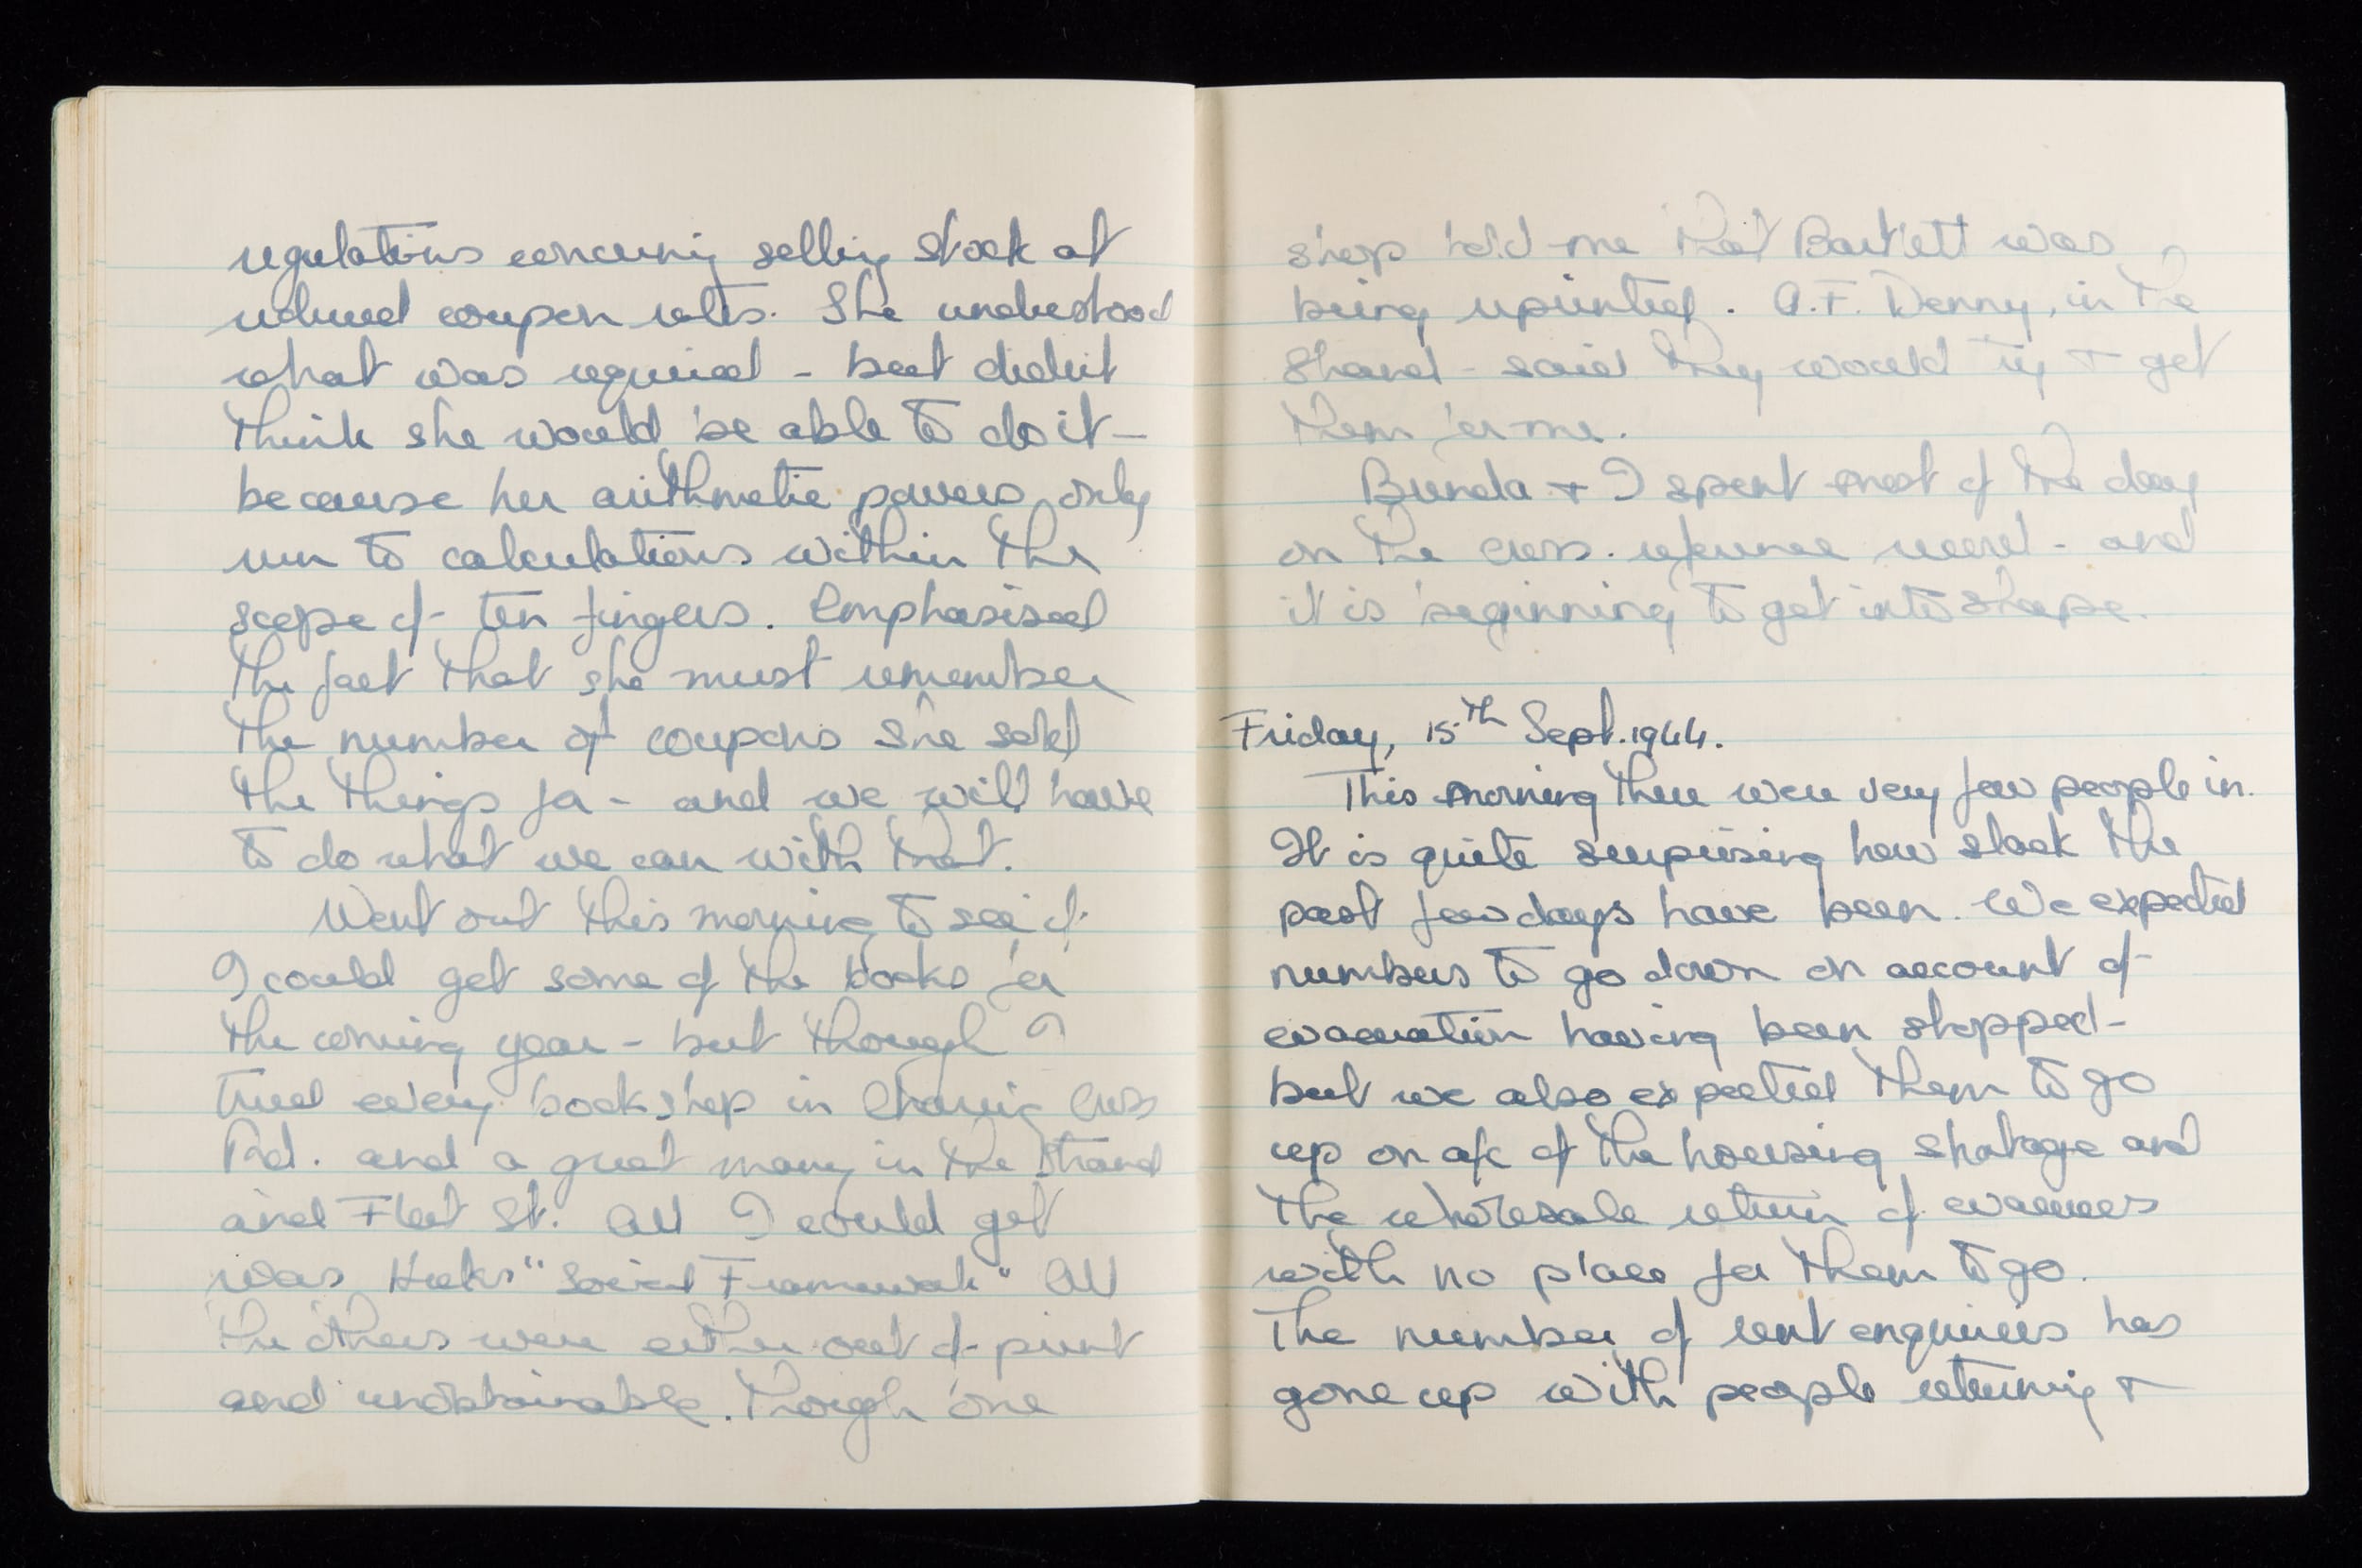 regulations concerning selling stock at
reduced coupon rates. She understood
what was required - but didn't
think she would be able to do it -
because her arithmetic powers only
run to calculations within the
scope of ten fingers. Emphasised
the fact that she must remember
the number of coupons she sold
the things for - and we will have
to do what we can with that.
Went out this morning to see if
I could get some of the books for
the coming year - but though I
tried every bookshop in Charing Cross
Rd. and a great many in the Strand
and Fleet St. All I could get
was Hicks' "Social Framework" All
the others were either out of print
and unobtainable. Though one
shop told me that Bartlett was
being reprinted. A.F. Denny, in the
Strand - said they would try & get
them for me.
Brenda & I spent most of the day
on the cross. reference record - and
it is beginning to get into shape.
Friday, 15th Sept. 1944.
This morning there were very few people in.
It is quite surprising how slack the
past few days have been. We expected
numbers to go down on account of
evacuation having been stopped -
but we also expected them to go
up on a/c of the housing shortage and
the wholesale return of evacuees
with no place for them to go.
The number of rent enquiries has
gone up with people returning &